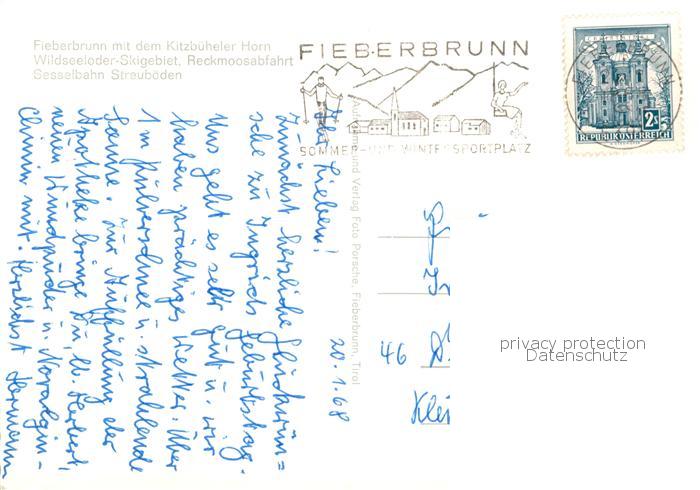 Fieberbrunn mit dem Kitzbüheler Horn
Wildseeloder-Skigebiet, Reckmoosabfahrt
Sesselbahn Streuböden
FIEBERBRUNN
SOMMER- UND WINTERSPORTPLATZ
2S
REPUBLIK ÖSTERREICH
Aufnahme und Verlag Foto Porsche, Fieberbrunn, Tirol
20.1.68
Ihr Lieben!
Zunächst herzliche Glückwün=
sche zu Ingrids Geburtstag.
Uns geht es sehr gut u. wir
haben prächtiges Wetter. Über
1 m Pulverschnee u. strahlende
Sonne. Zur Auffüllung der
Apotheke bringe Du, lb. Herbert,
neuen Wundpuder u. Novalgin-
Chinin mit. Herzlichst Hermann
46
Klei
privacy protection
Datenschutz